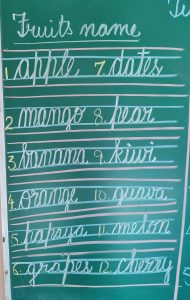 Fruits name
1. apple 7. dates
2. mango 8. pear
3. banana 9. kiwi
4. orange 10. guava
5. papaya 11. melon
6. grapes 12. cherry